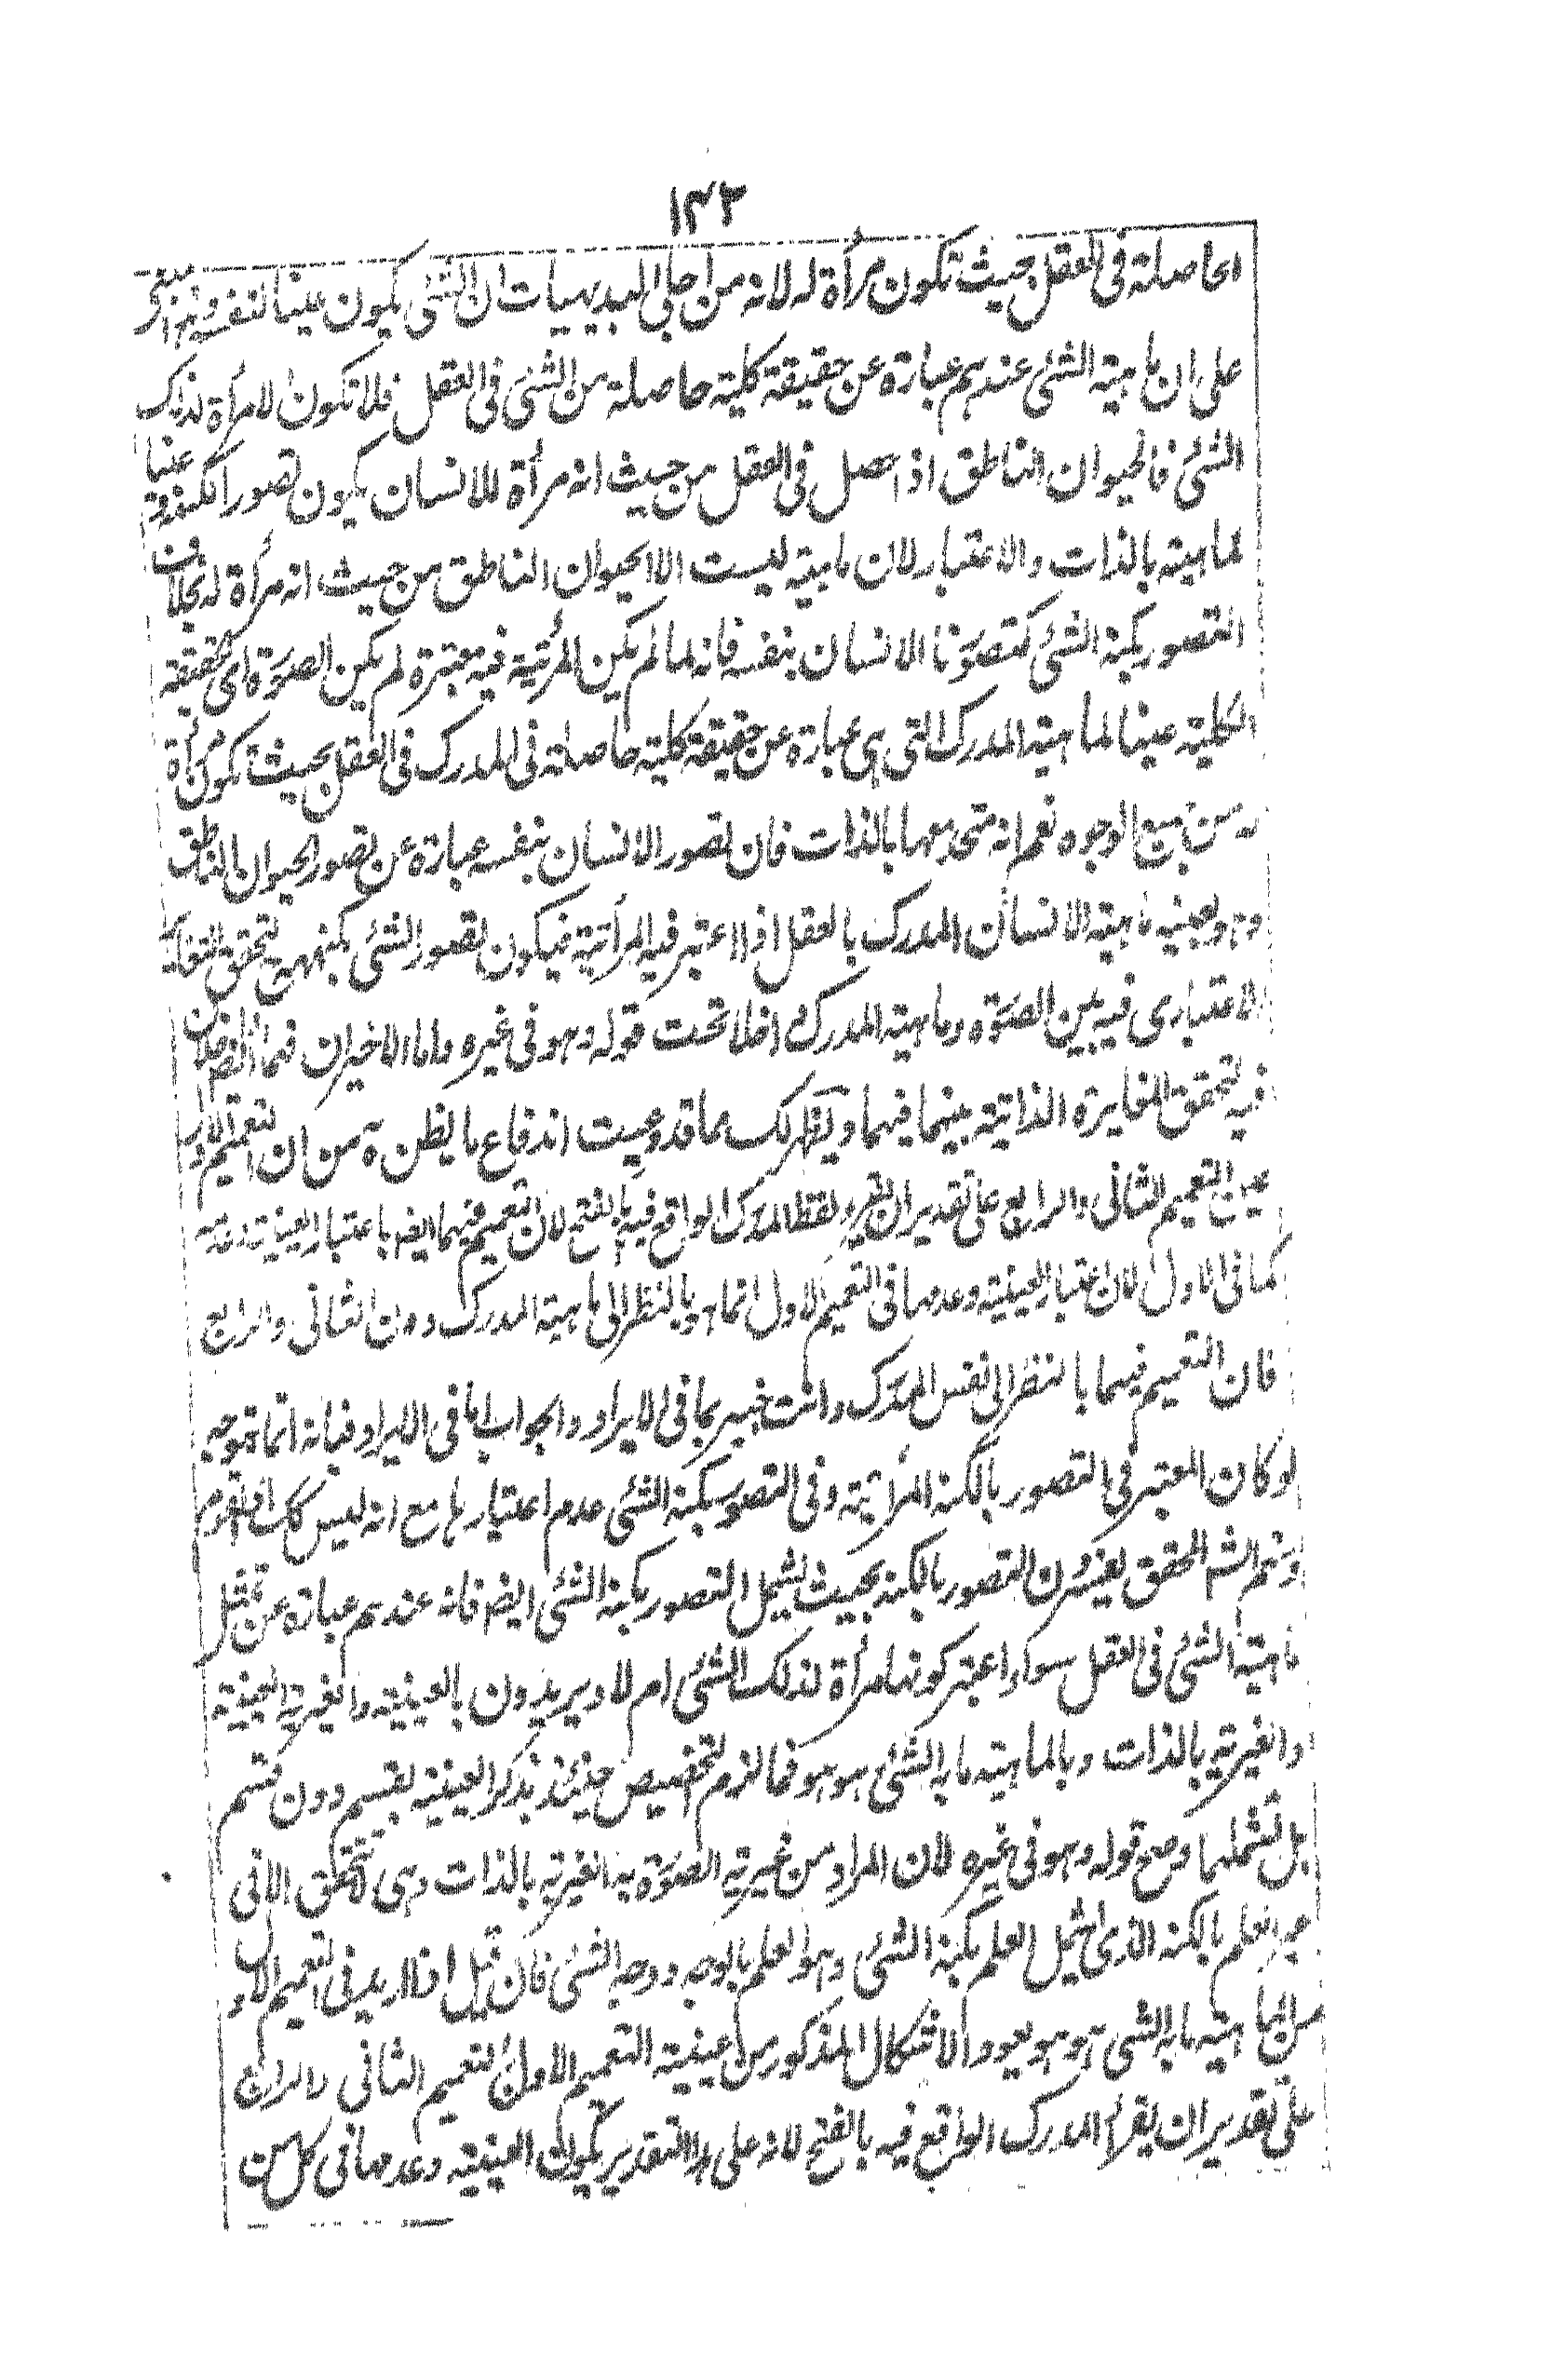 ١٣٢
الحاصلة فى العقل بحيث تكون مرأة له لانه من اجلى البديهيات ان الشئى يكون عينا لنفسه وهذا مبنى
على ان ماهية الشئى عندهم عبارة عن حقيقة كلية حاصلة من الشئى فى العقل فلا تكون الا مرأة لذلك
الشئى فالحيوان الناطق اذا حصل فى العقل من حيث انه مرأة للانسان يكون تصورا بكنهه و عينا
لماهيته بالذات والاعتبار لان ماهيته ليست الا الحيوان الناطق من حيث انه مرأة له بخلاف
التصور بكنه الشئى كتصورنا الانسان بنفسه فانه لما لم يكن المرئية فيه معتبرة لم يكن الصورة اى الحقيقة
الكلية عينا لماهية المدرك التى هى عبارة عن حقيقة كلية حاصلة فى المدرك فى العقل بحيث تكون مرأة
له من جميع الوجوه نعم انه متحد معها بالذات فان تصور الانسان بنفسه عبارة عن تصور الحيوان الناطق
وهو بعينه ماهية الانسان المدرك بالعقل اذا اعتبر فيه المرأتية فيكون تصور الشئى بكنهه لتحقق التغاير
الاعتبارى فيه بين الصورة وماهية المدرك داخلا تحت قوله وهو فى غيره واما الاخيران فهما ايضا داخلان
فيه لتحقق المغايرة الذاتية بينهما فيهما ويظهر لك مما قد وعيت اندفاع ما يظن من ان التعميم الاول
عين التعميم الثانى والرابع على تقدير ان يقرء لفظ المدرك الواقع فيه بالفتح لان التعميم فيهما ايضا باعتبار العينية وعدمه
كما فى الاول لان اعتبار العينية وعدمها فى التعميم الاول انما هو بالنظر الى ماهية المدرك دون الثانى والرابع
فان التعميم فيهما بالنظر الى نفس المدرك وانت خبير بما فى الايراد والجواب اما فى الايراد فبانه انما يتوجه
لو كان المعتبر فى التصور بالكنه المرأتية وفى التصور بكنه الشئى عدم اعتبارها مع انه ليس كك اذ القوم
ومنهم الشه المحقق يفسرون التصور بالكنه بحيث يشمل التصور بكنه الشئى ايضا فانه عندهم عبارة عن تمثل
ماهية الشئى فى العقل سواء اعتبر كونها مرأة لذلك الشئى ام لا ويريدون بالعينية والغيرية العينية
والغيرية بالذات وبالماهية ما به الشئى هو هو فما لزم التخصيص حينئذ بذكر العينية بقسم دون قسم
بل تشملهما وصح قوله وهو فى غيره لان المراد من غيرية الصورة به الغيرية بالذات وهى لا تتحقق الا فى
غير العلم بالكنه الذى يشمل العلم بكنه الشئى وهو العلم بالوجه ووجه الشئى فان قيل اذا اريد فى التعميم الاول
من الماهية ما به الشئى هو هو يعود الاشكال المذكور من عينية التعميم الاول للتعميم الثانى والرابع
على تقدير ان يقرأ المدرك الواقع فيه بالفتح لانه على هذا التقدير يكون العينية وعدمها فى كل من